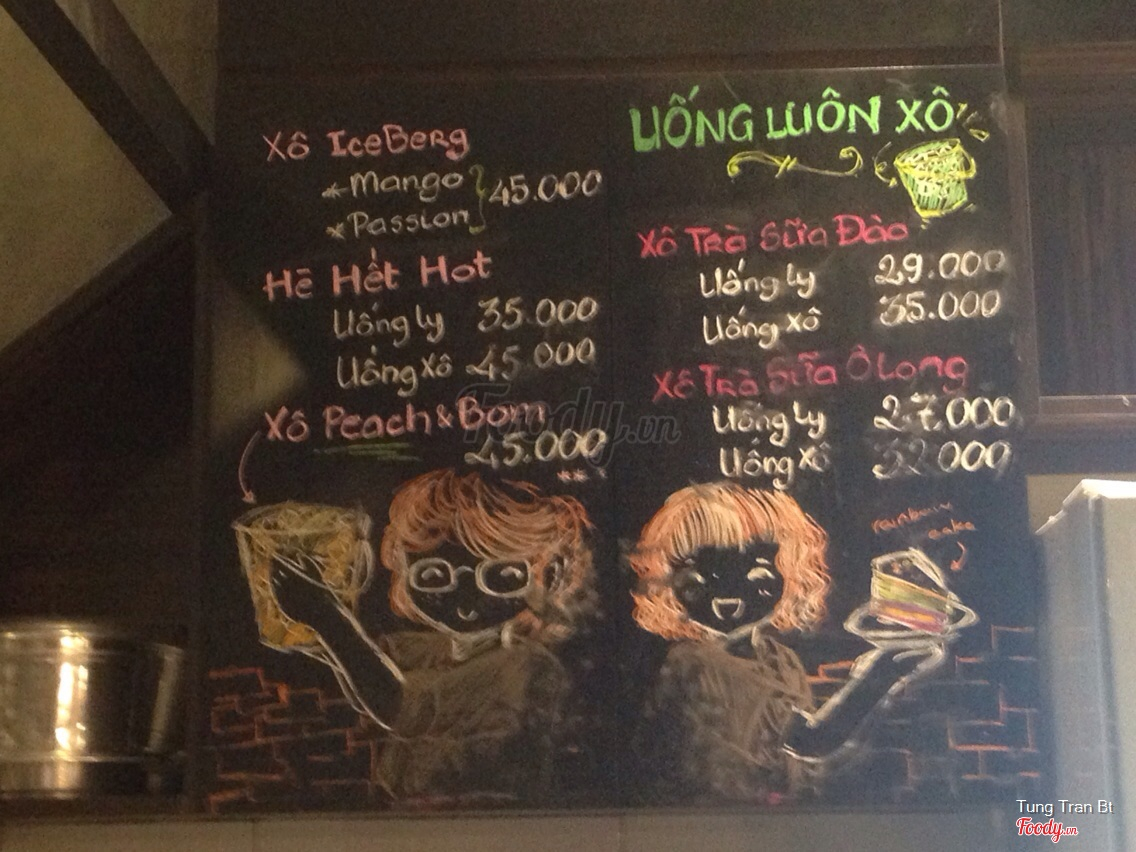 Xô IceBerg
*Mango
*Passion
45.000
Hè Hết Hot
Uống ly 35.000
Uống xô 45.000
Xô Peach & Bom
45.000
UỐNG LUÔN XÔ
Xô Trà Sữa Đào
Uống ly 29.000
Uống xô 35.000
Xô Trà Sữa Ôlong
Uống ly 27.000
Uống xô 32.000
rainbow
cake
Foody.vn
Tung Tran Bt
Foody.vn